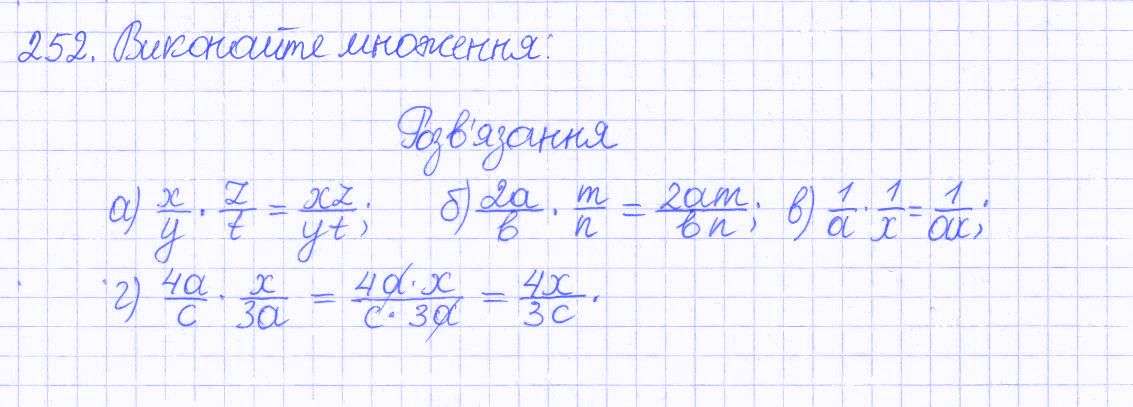 252. Виконайте множення:
Розв'язання
а) x/y · z/t = xz/yt; б) 2a/b · m/n = 2am/bn; в) 1/a · 1/x = 1/ax;
г) 4a/c · x/3a = 4a·x/c·3a = 4x/3c.